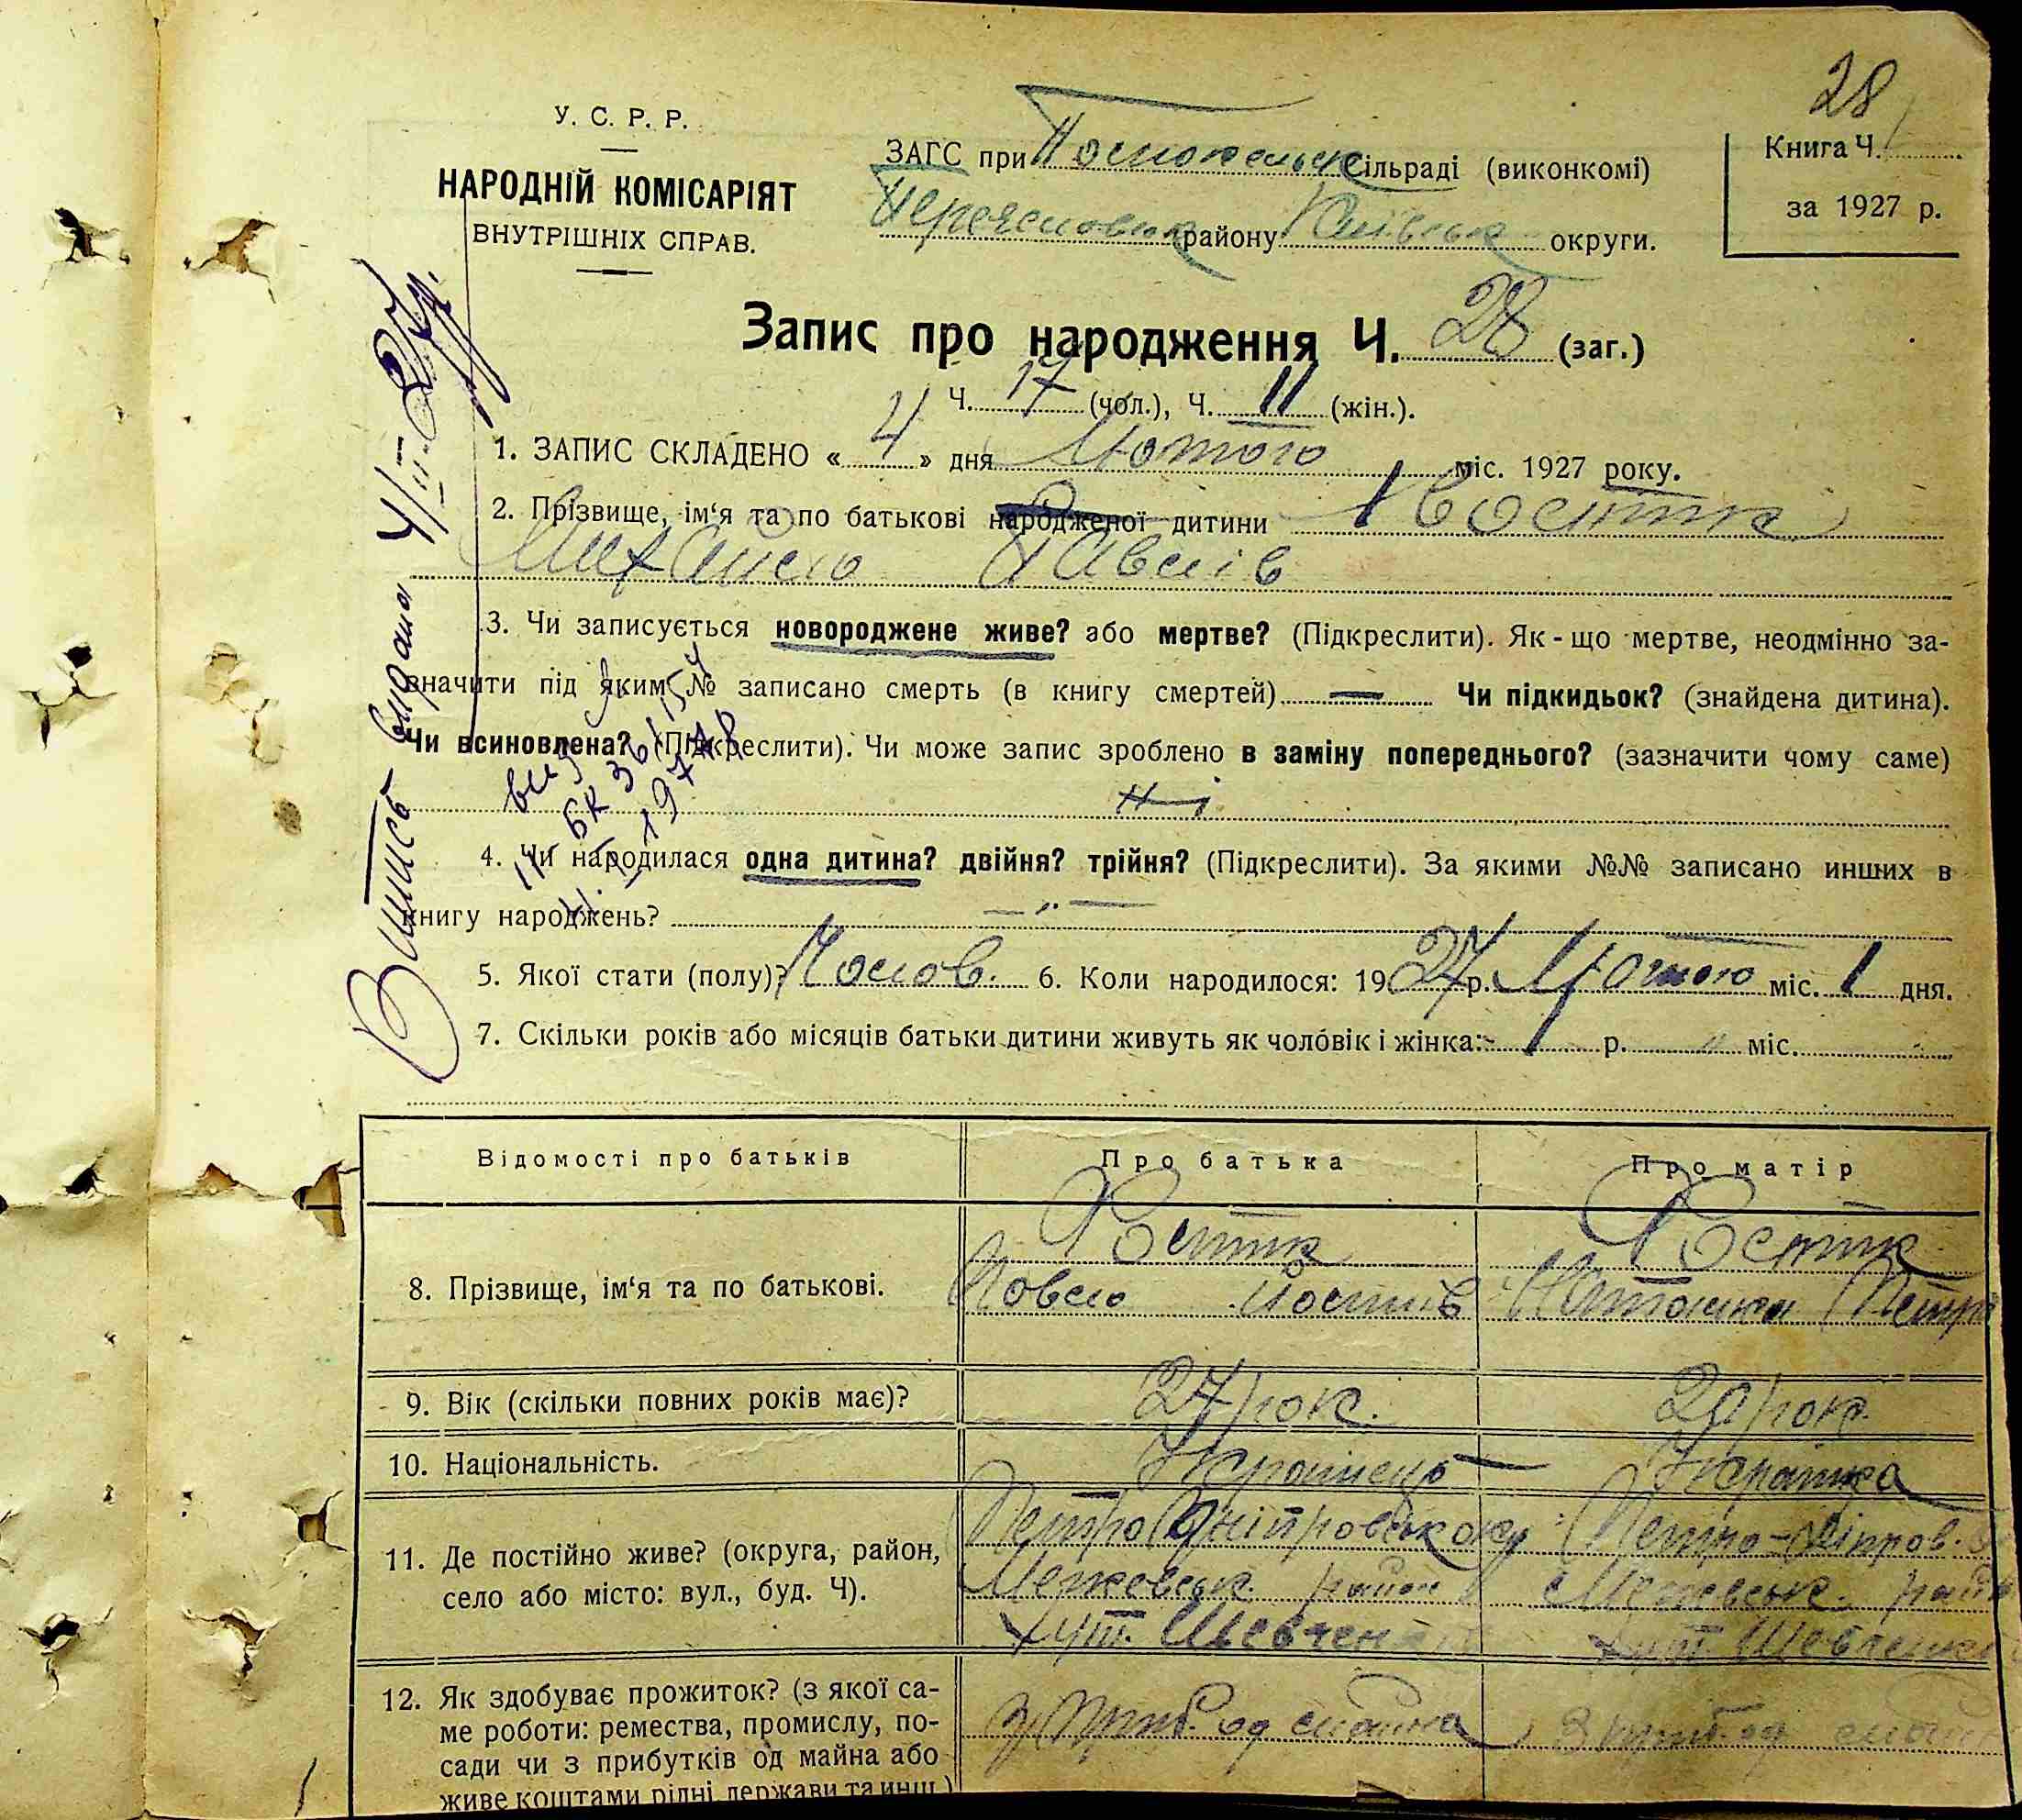 28
У. С. Р. Р.
НАРОДНІЙ КОМІСАРІЯТ
ВНУТРІШНІХ СПРАВ.
ЗАГС при сільраді (виконкомі)
району округи.
Книга Ч.
за 1927 р.
Запис про народження Ч. 28 (заг.)
Ч. 17 (чол.), Ч. 11 (жін.).
1. ЗАПИС СКЛАДЕНО « 4 » дня Лютого міс. 1927 року.
2. Прізвище, ім‘я та по батькові народженої дитини
Михайло Павлів
3. Чи записується новороджене живе? або мертве? (Підкреслити). Як-що мертве, неодмінно за-
значити під яким № записано смерть (в книгу смертей) — Чи підкидьок? (знайдена дитина).
Чи всиновлена? (Підкреслити). Чи може запис зроблено в заміну попереднього? (зазначити чому саме)
ні
4. Чи народилася одна дитина? двійня? трійня? (Підкреслити). За якими №№ записано инших в
книгу народжень? — „ —
5. Якої стати (полу)? Чолов. 6. Коли народилося: 1927 р. Лютого міс. 1 дня.
7. Скільки років або місяців батьки дитини живуть як чоловік і жінка: 1 р. „ міс.
Випись видана 4/II-27р.
Відомості про батьків Про батька Про матір
8. Прізвище, ім‘я та по батькові.
Павло
9. Вік (скільки повних років має)? 27 рок. 20 рок.
10. Національність. Українець Українка
11. Де постійно живе? (округа, район,
село або місто: вул., буд. Ч).
Межевськ. район Межевськ. район
хут. Шевченк хут. Шевченк
12. Як здобуває прожиток? (з якої са-
ме роботи: ремества, промислу, по-
сади чи з прибутків од майна або
живе коштами рідні, держави та инш.)
З приб. од майна З приб. од майн